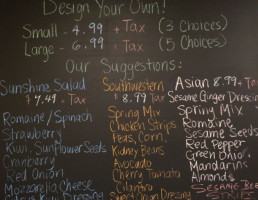 Design Your Own!
Small - 4.99 + Tax (3 Choices)
Large - 6.99 + Tax (5 Choices)
Our Suggestions:
Sunshine Salad
$7.49 + Tax
Romaine/Spinach
Strawberry
Kiwi, Sunflower Seeds
Cranberry
Red Onion
Mozzarella Cheese
Southwestern
$8.99 Tax
Spring Mix
Chicken Strips
Peas, Corn,
Kidney Beans
Avocado
Cherry Tomato
Cilantro
Dressing
Asian 8.99 + Tax
Sesame Ginger Dressing
Spring Mix
Romaine,
Sesame Seeds
Red Pepper
Green Onion,
Mandarins
Almonds
Sesame